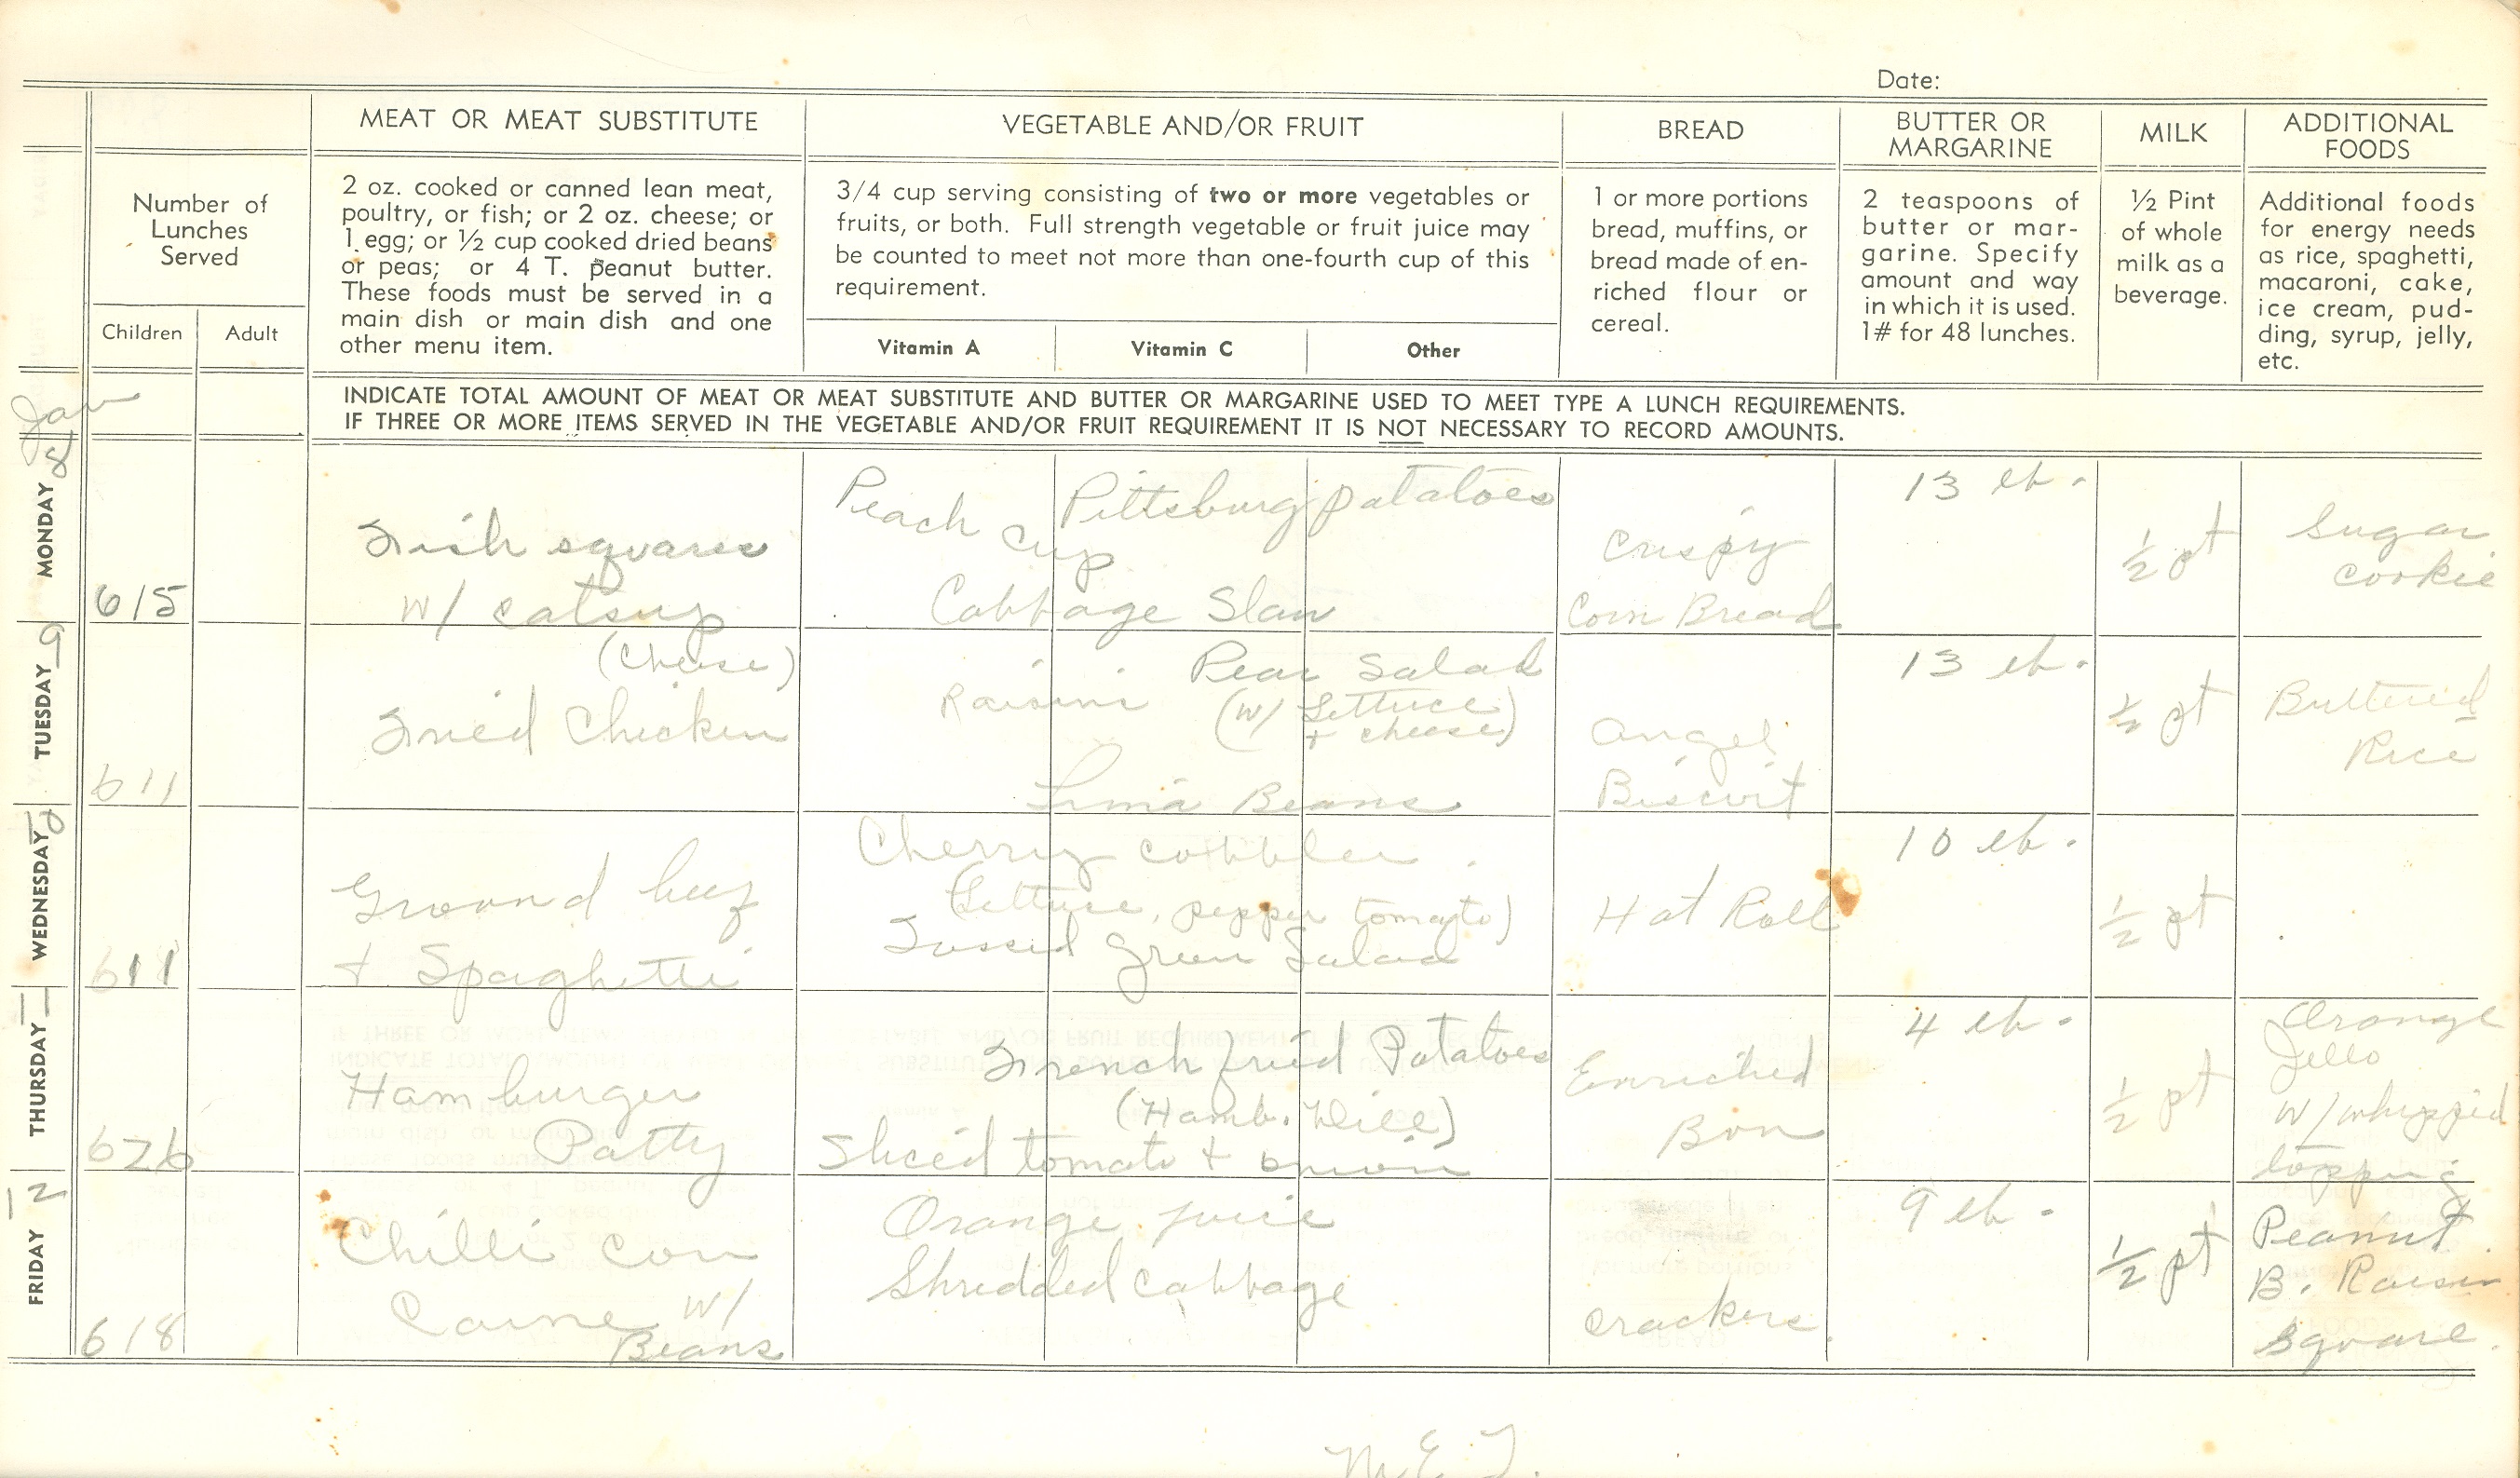 Date:
MEAT OR MEAT SUBSTITUTE
VEGETABLE AND/OR FRUIT
BREAD
BUTTER OR
MARGARINE
MILK
ADDITIONAL
FOODS
Number of
Lunches
Served
Children
Adult
2 oz. cooked or canned lean meat,
poultry, or fish; or 2 oz. cheese; or
1 egg; or ½ cup cooked dried beans
or peas; or 4 T. peanut butter.
These foods must be served in a
main dish or main dish and one
other menu item.
3/4 cup serving consisting of two or more vegetables or
fruits, or both. Full strength vegetable or fruit juice may
be counted to meet not more than one-fourth cup of this
requirement.
Vitamin A
Vitamin C
Other
1 or more portions
bread, muffins, or
bread made of en-
riched flour or
cereal.
2 teaspoons of
butter or mar-
garine. Specify
amount and way
in which it is used.
1# for 48 lunches.
½ Pint
of whole
milk as a
beverage.
Additional foods
for energy needs
as rice, spaghetti,
macaroni, cake,
ice cream, pud-
ding, syrup, jelly,
etc.
INDICATE TOTAL AMOUNT OF MEAT OR MEAT SUBSTITUTE AND BUTTER OR MARGARINE USED TO MEET TYPE A LUNCH REQUIREMENTS.
IF THREE OR MORE ITEMS SERVED IN THE VEGETABLE AND/OR FRUIT REQUIREMENT IT IS NOT NECESSARY TO RECORD AMOUNTS.
Jan
MONDAY 8
615
Fish squares
w/ catsup
Peach cup
Pittsburg potatoes
Cabbage Slaw
Crispy
Corn Bread
13 lb.
½ pt
Sugar
cookie
TUESDAY 9
611
(Cheese)
Fried Chicken
Raisins
Pear Salad
(w/ Lettuce
+ cheese)
Lima Beans
Angel
Biscuit
13 lb.
½ pt
Buttered
Rice
WEDNESDAY 10
611
Ground beef
+ Spaghetti
Cherry cobbler
(Lettuce, pepper tomato)
Tossed Green Salad
Hot Roll
10 lb.
½ pt
THURSDAY 11
626
Hamburger
Patty
French fried Potatoes
(Hamb. Dill)
Sliced tomato + onion
Enriched
Bun
4 lb.
½ pt
Orange
Jello
w/ whipped
topping
FRIDAY 12
618
Chilli con
Carne w/
Beans
Orange juice
Shredded cabbage
crackers
9 lb.
½ pt
Peanut
B. Raisin
square.
M. E. T.